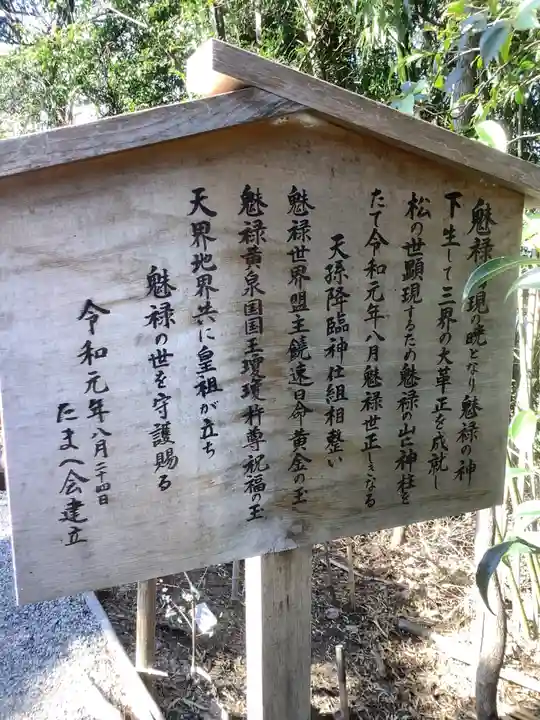 魅禄の現の暁となり魅禄の神
下生して三界の大革正を成就し
松の世顕現するため魅禄の山に神柱を
たて令和元年八月魅禄世正しきなる
天孫降臨神仕組相整い
魅禄世界盟主饒速日命黄金の玉
魅禄黄泉国国王瓊瓊杵尊祝福の玉
天界地界共に皇祖が立ち
魅禄の世を守護賜る
令和元年八月二十四日
たまへ会建立